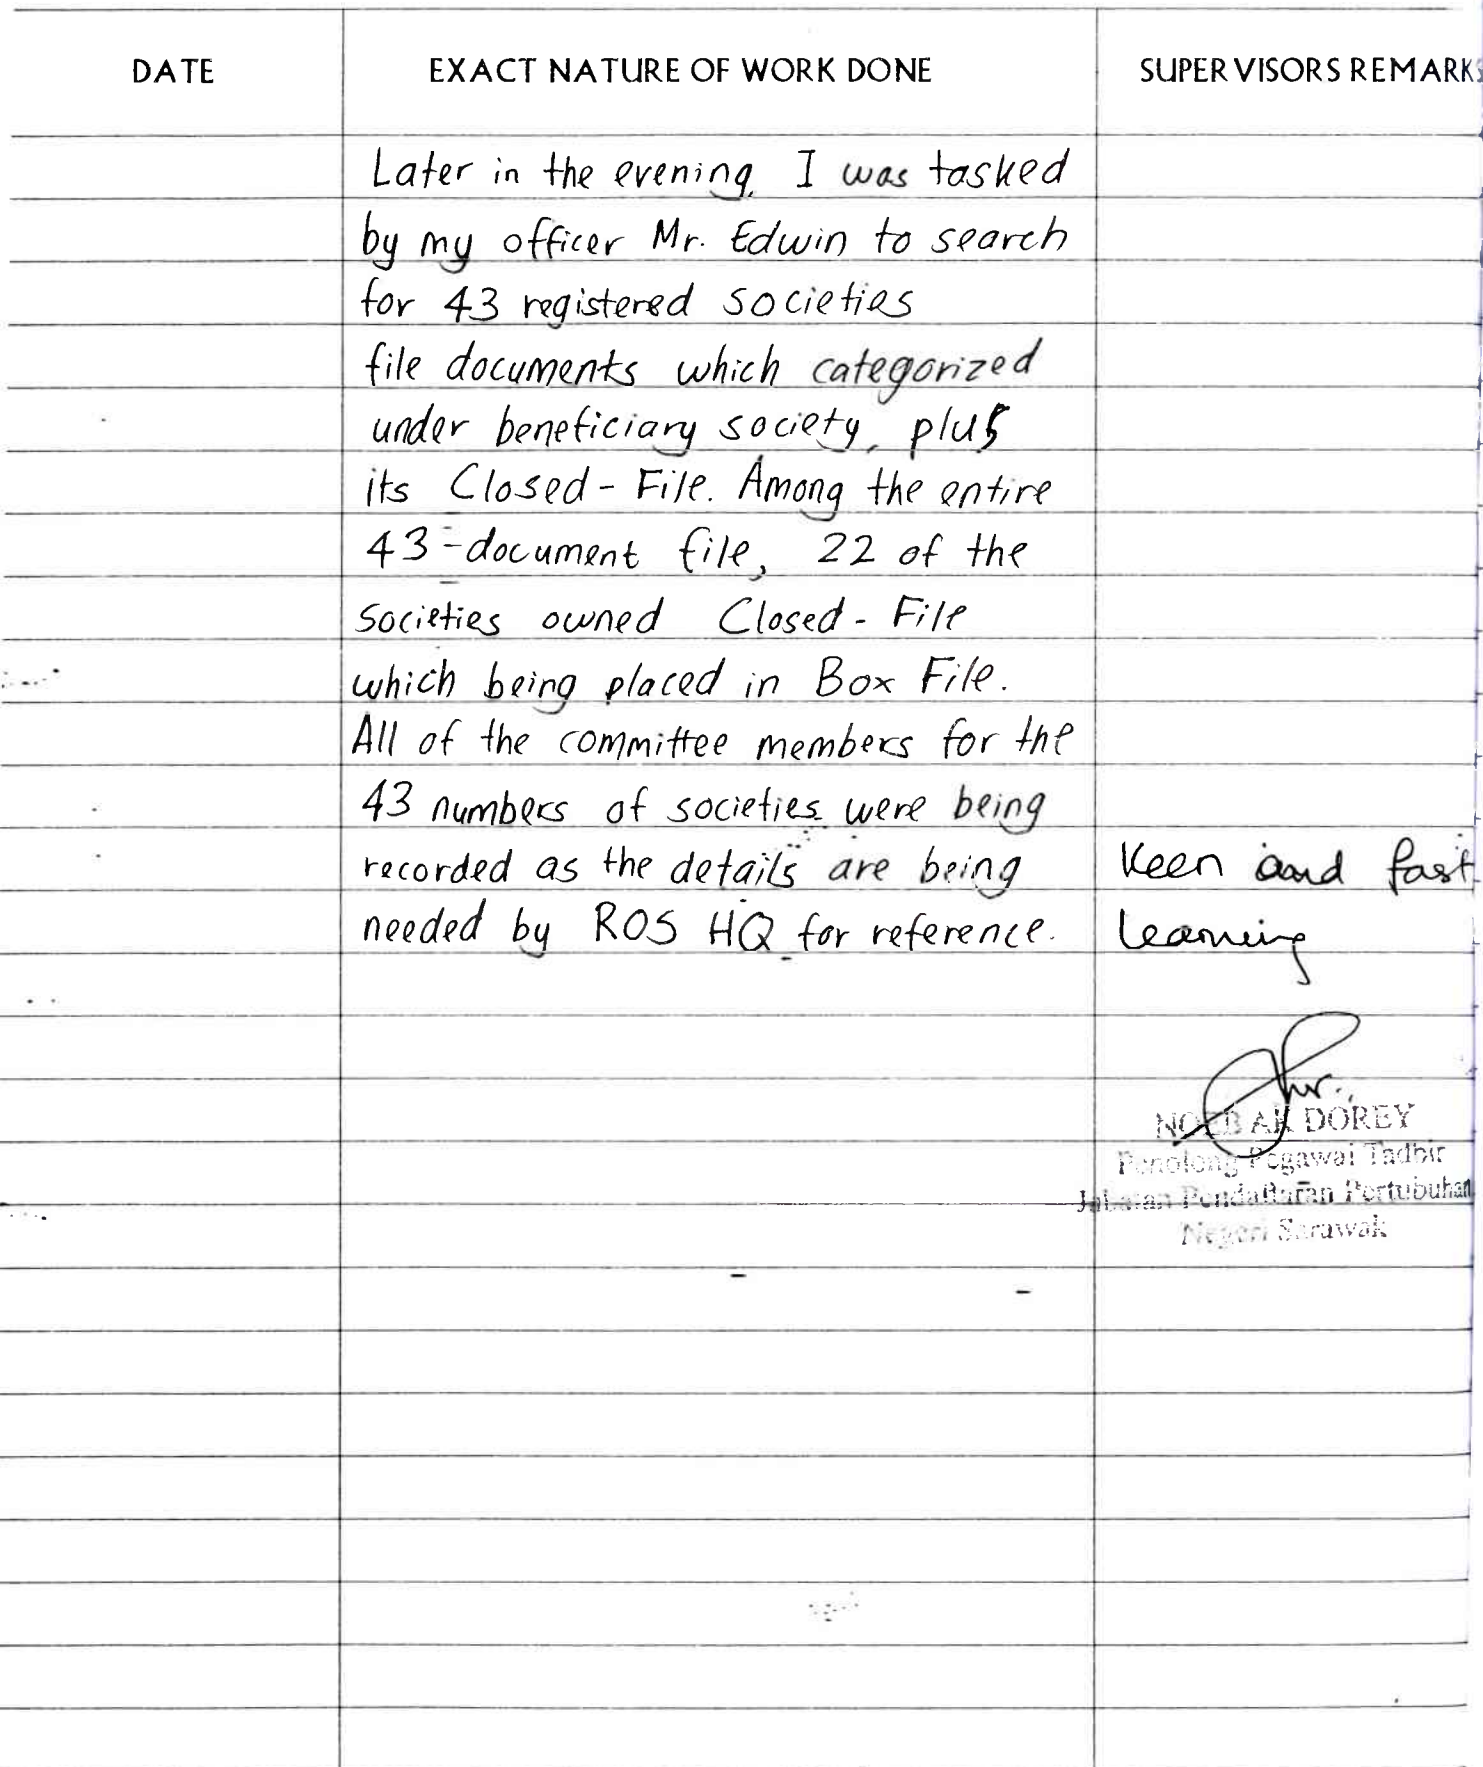 DATE EXACT NATURE OF WORK DONE SUPERVISORS REMARKS
Later in the evening, I was tasked
by my officer Mr. Edwin to search
for 43 registered societies
file documents which categorized
under beneficiary society, plus
its Closed-File. Among the entire
43-document file, 22 of the
societies owned Closed-File
which being placed in Box File.
All of the committee members for the
43 numbers of societies were being
recorded as the details are being
needed by ROS HQ for reference.
Keen and fast
learning
AK DOREY
Penolong Pegawai Tadbir
Jabatan Pendaftaran Pertubuhan
Negeri Sarawak